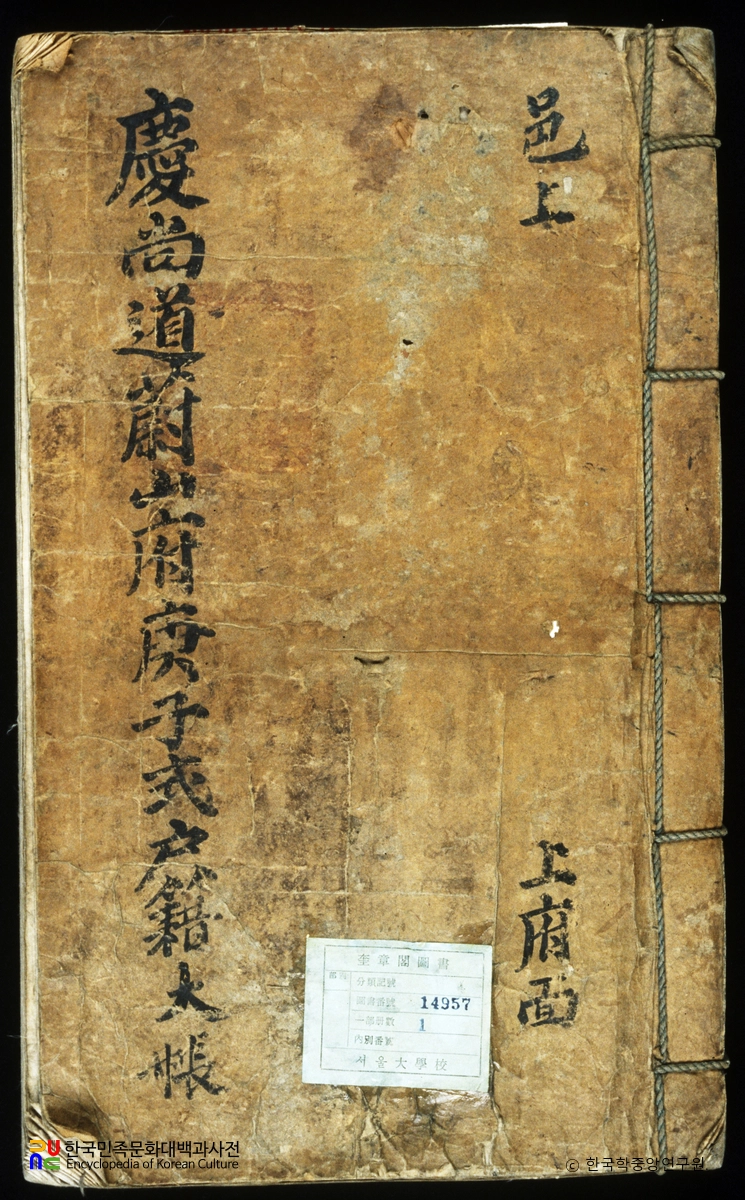 邑上
上府面
慶尚道蔚山府庚子式戶籍大帳
奎章閣圖書
分類記號
圖書番號 14957
一部冊數 1
內別番號
서울大學校
한국민족문화대백과사전
Encyclopedia of Korean Culture
© 한국학중앙연구원